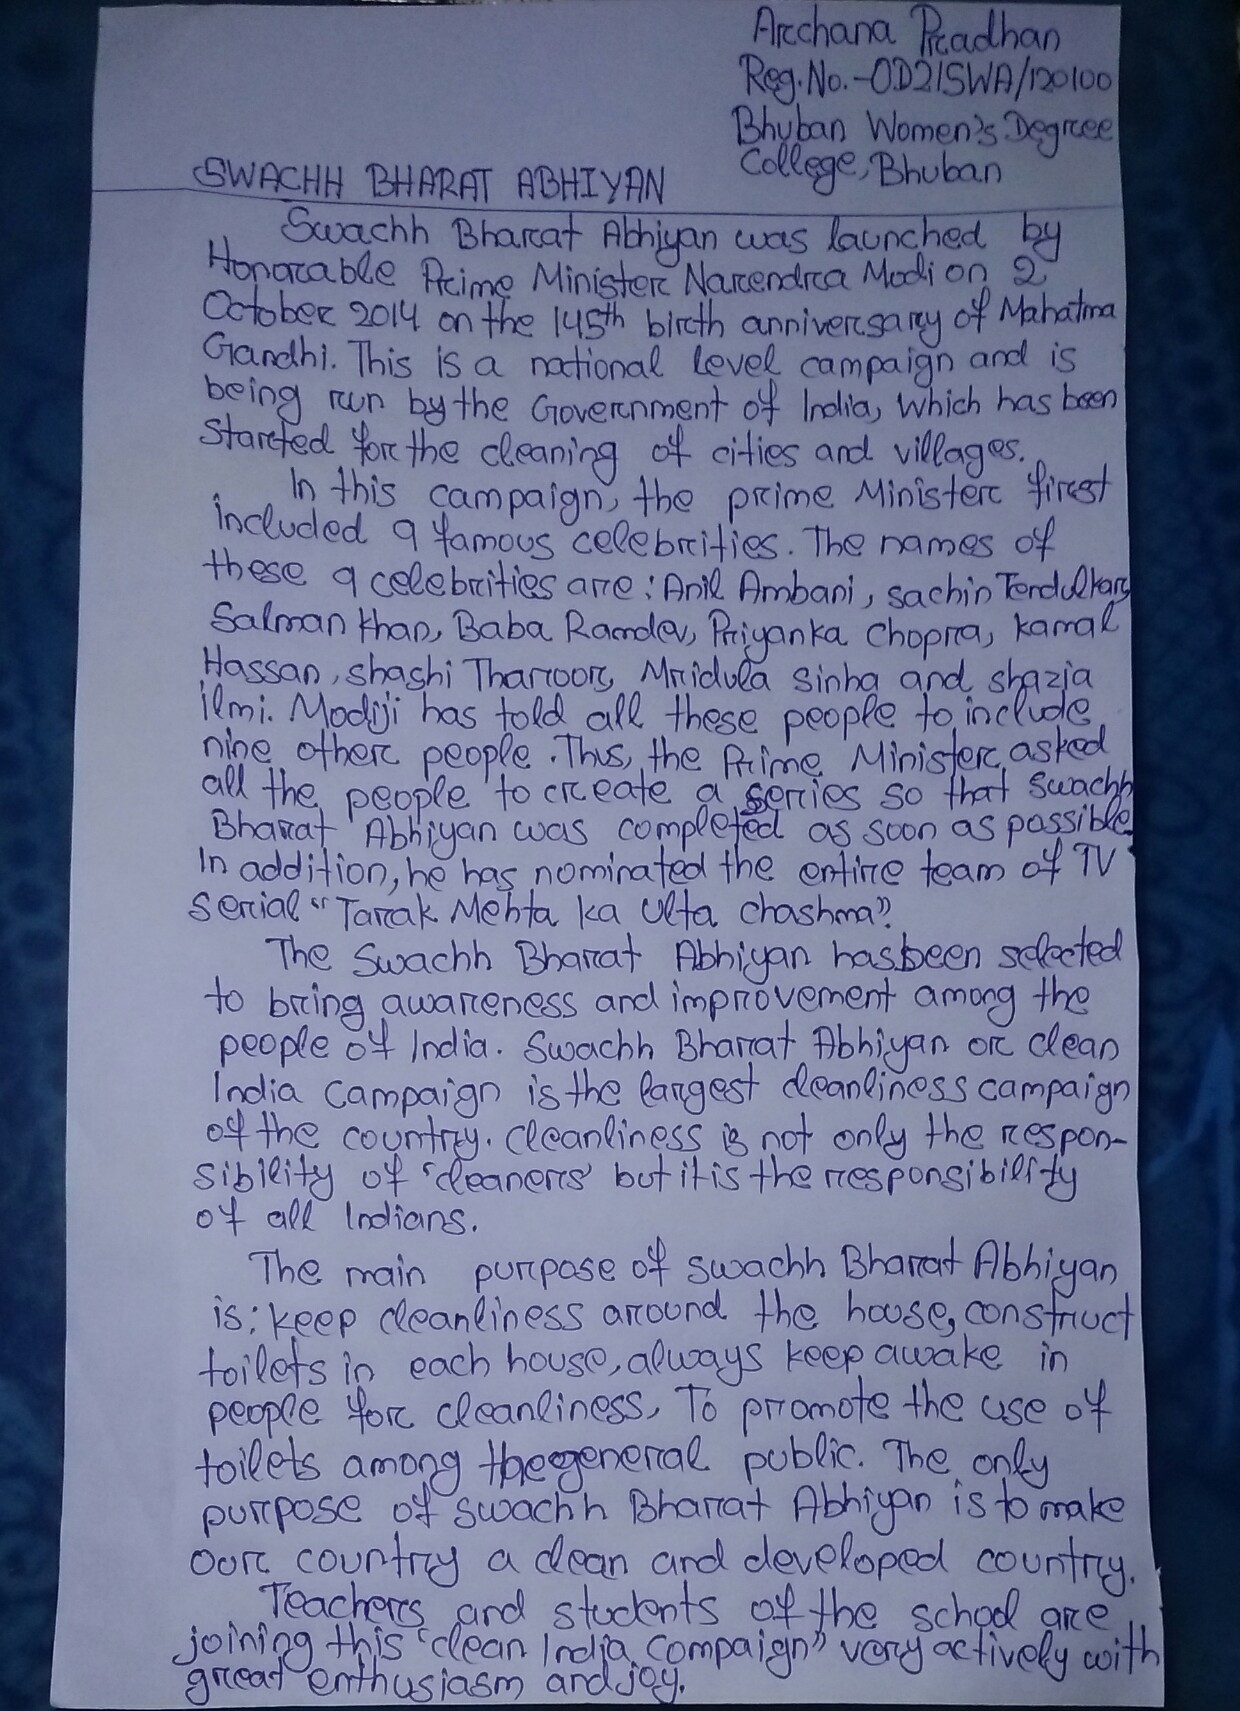 Archana Pradhan
Reg.No.-OD21SWA/120100
Bhuban Women's Degree
College, Bhuban
SWACHH BHARAT ABHIYAN
Swachh Bharat Abhiyan was launched by
Honorable Prime Minister Narendra Modi on 2
October 2014 on the 145th birth anniversary of Mahatma
Gandhi. This is a national level campaign and is
being run by the Government of India, which has been
started for the cleaning of cities and villages.
In this campaign, the prime Minister first
included 9 famous celebrities. The names of
these 9 celebrities are : Anil Ambani, sachin Tendulkar,
Salman Khan, Baba Ramdev, Priyanka Chopra, kamal
Hassan, shashi Tharoor, Mridula sinha and shazia
ilmi. Modiji has told all these people to include
nine other people. Thus, the Prime Minister asked
all the people to create a series so that swachh
Bharat Abhiyan was completed as soon as possible.
In addition, he has nominated the entire team of TV
serial "Tarak Mehta ka Ulta chashma".
The Swachh Bharat Abhiyan has been selected
to bring awareness and improvement among the
people of India. Swachh Bharat Abhiyan or clean
India campaign is the largest cleanliness campaign
of the country. cleanliness is not only the respon-
sibility of 'cleaners' but it is the responsibility
of all Indians.
The main purpose of swachh Bharat Abhiyan
is : keep cleanliness around the house, construct
toilets in each house, always keep awake in
people for cleanliness, To promote the use of
toilets among the general public. The only
purpose of swachh Bharat Abhiyan is to make
our country a clean and developed country.
Teachers and students of the school are
joining this "clean India Campaign" very actively with
great enthusiasm and joy.